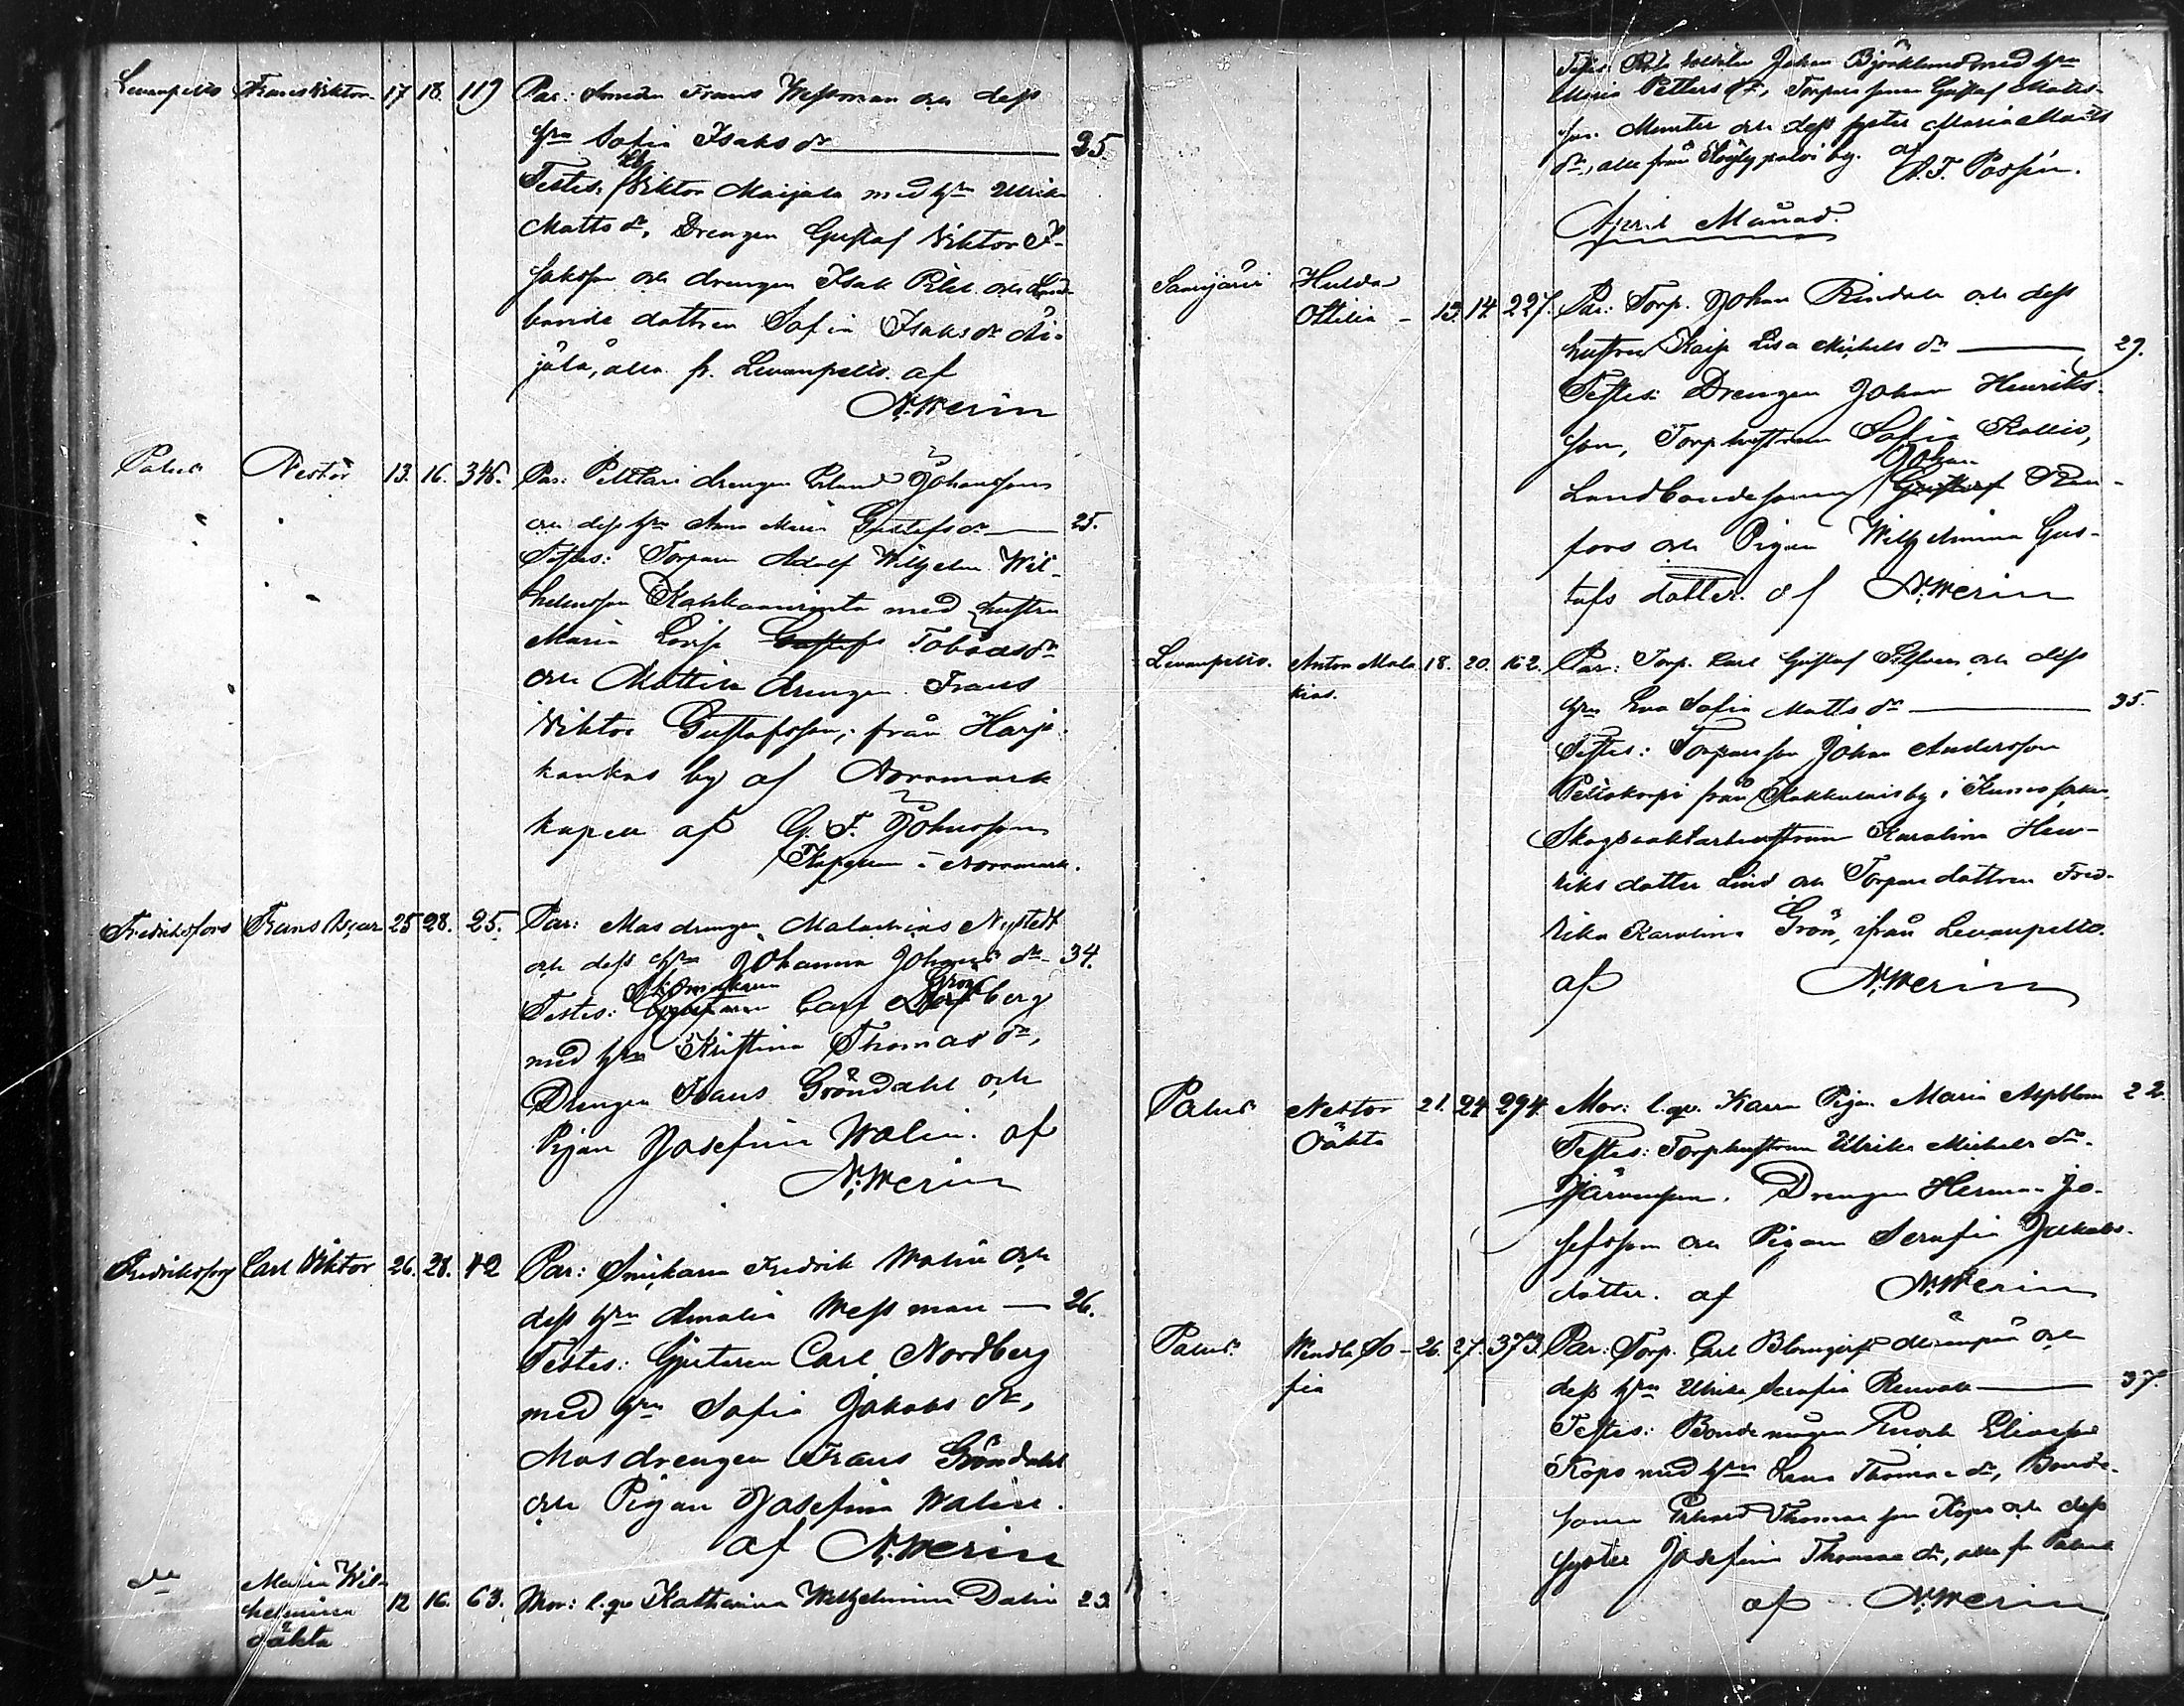 Levanpelto Frans Viktor 17 18. 119 Par: Smeden Frans Wessman och dess
hru Sofia Isaks dr 25.
Testes: Lb Viktor Maijala med hru Ulrika
Matts dr, Drengen Gustaf Viktor I-
saksson och drengen Isak och Land-
bonde dottren Sofia Isaks dr Äi-
jälä, alla fr. Levanpelto. af
N. Merin
Palus Nestor 13. 16. 346. Par: Pelttari drengen Erland Johansson
och dess hru Anna Maria Gustafs dr 25.
Testes: Torparen Adolf Wilhelm Wil-
helmsson med hustru
Maria Lovisa Gustafs Tobiasdr
och Mattila drengen Frans
Viktor Gustafsson, från Harja-
kankas by af Norrmark
kapell af G. F. Johnsson
Kapellan i Norrmark.
Fredriksfors Frans Oscar 25 28. 25. Par: Masdrengen Malachias Nystedt
och dess hru Johanna Johans dr 34.
Testes: Carl berg
med hru Kristina Thomas dr,
Drengen Frans Gröndahl och
Pigan Josefina Walin. af
N. Merin
Fredriksfors Carl Viktor 26. 28. 42 Par: Smickaren Fredrik Walin och
dess hru Amalia Wessman 26.
Testes: Gjuteren Carl Nordberg
med hru Sofia Jakobs dr,
Masdrengen Frans Gröndahl
och Pigan Josefina Walin.
af N. Merin
do Maria Wil-
helmina 12 16. 63. Mor: l. qv Katharina Wilhelmina Dalin 23.
oäkta
Testes: Johan Björklund med hru
Maria Petters dr, Torpare sonen Gustaf Matts-
son Munter och dess syster Maria Matts
dr, alla från by. af
A. F. Passin.
April Månad.
Samijärvi Hulda
Ottilia - 13. 14. 227. Par: Torp. Johan Rindala och dess
hustru Kaisa Lisa Michels dr 29.
Testes: Drengen Johan Henriks-
son, Torphustrun Sofia Kallio,
Johan
Landbondesonen Gustaf Ren-
fors och Pigan Wilhelmina Gus-
tafs dotter. af N. Merin
Levanpelto. Anton Mala 18. 20. 162. Par: Torp. Carl Gustaf Silfver och dess
kias.
hru Eva Sofia Matts dr 35.
Testes: Torpareson Johan Andersson
Peltokorpi från by i Kumo socken
Skogvaktarhustrun Karolina Hen-
riks dotter Lind och Torpare dottren Fred-
rika Karolina Grön, från Levanpelto.
af N. Merin
Palus Nestor 21. 24 294. Mor: l. qv. Karra Pigan Maria Aspblom 22.
Oäkta
Testes: Torphustrun Ulrika Michels dr
Järvenpää. Drengen Herman Jo-
sefsson och Pigan Serafia Jakobs-
dotter. af N. Merin
Palus. Wendla So- 26. 27. 373. Par: Torp. Carl Blomqvist och
fia
dess hru Ulrika Serafia 37.
Testes: Bonde mågen Enok Eliasson
Kopo med hru Lena Thomas dr, Bonde-
sonen Erland Thomasson Kopo och dess
syster Josefina Thomas dr, alla fr Palus
af N. Merin